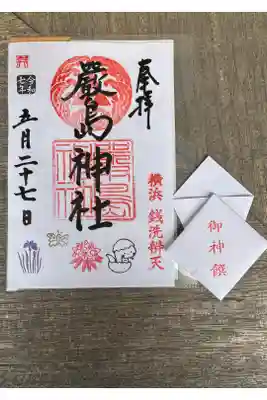 奉拝
嚴島神社
横浜 銭洗辨天
令和
七年
五月二十七日
御神饌